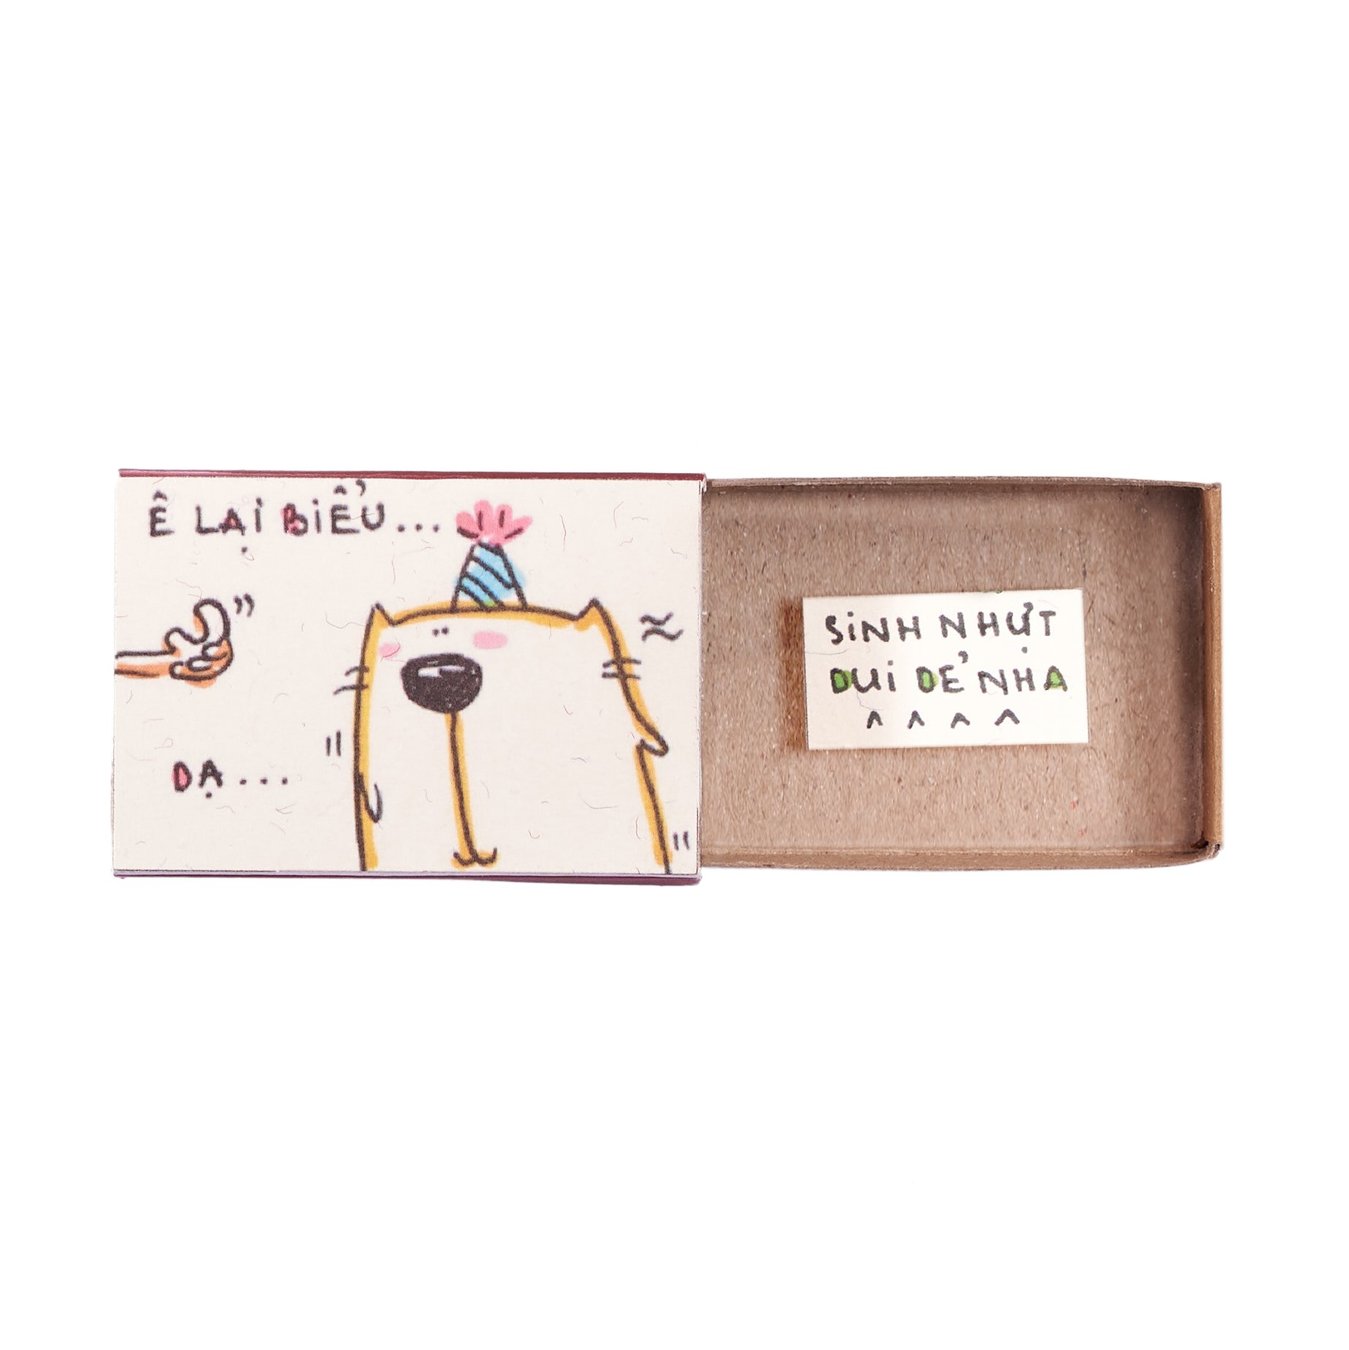 Ê LẠI BIỂU...
DẠ...
SINH NHỰT
DUI DẺ NHA